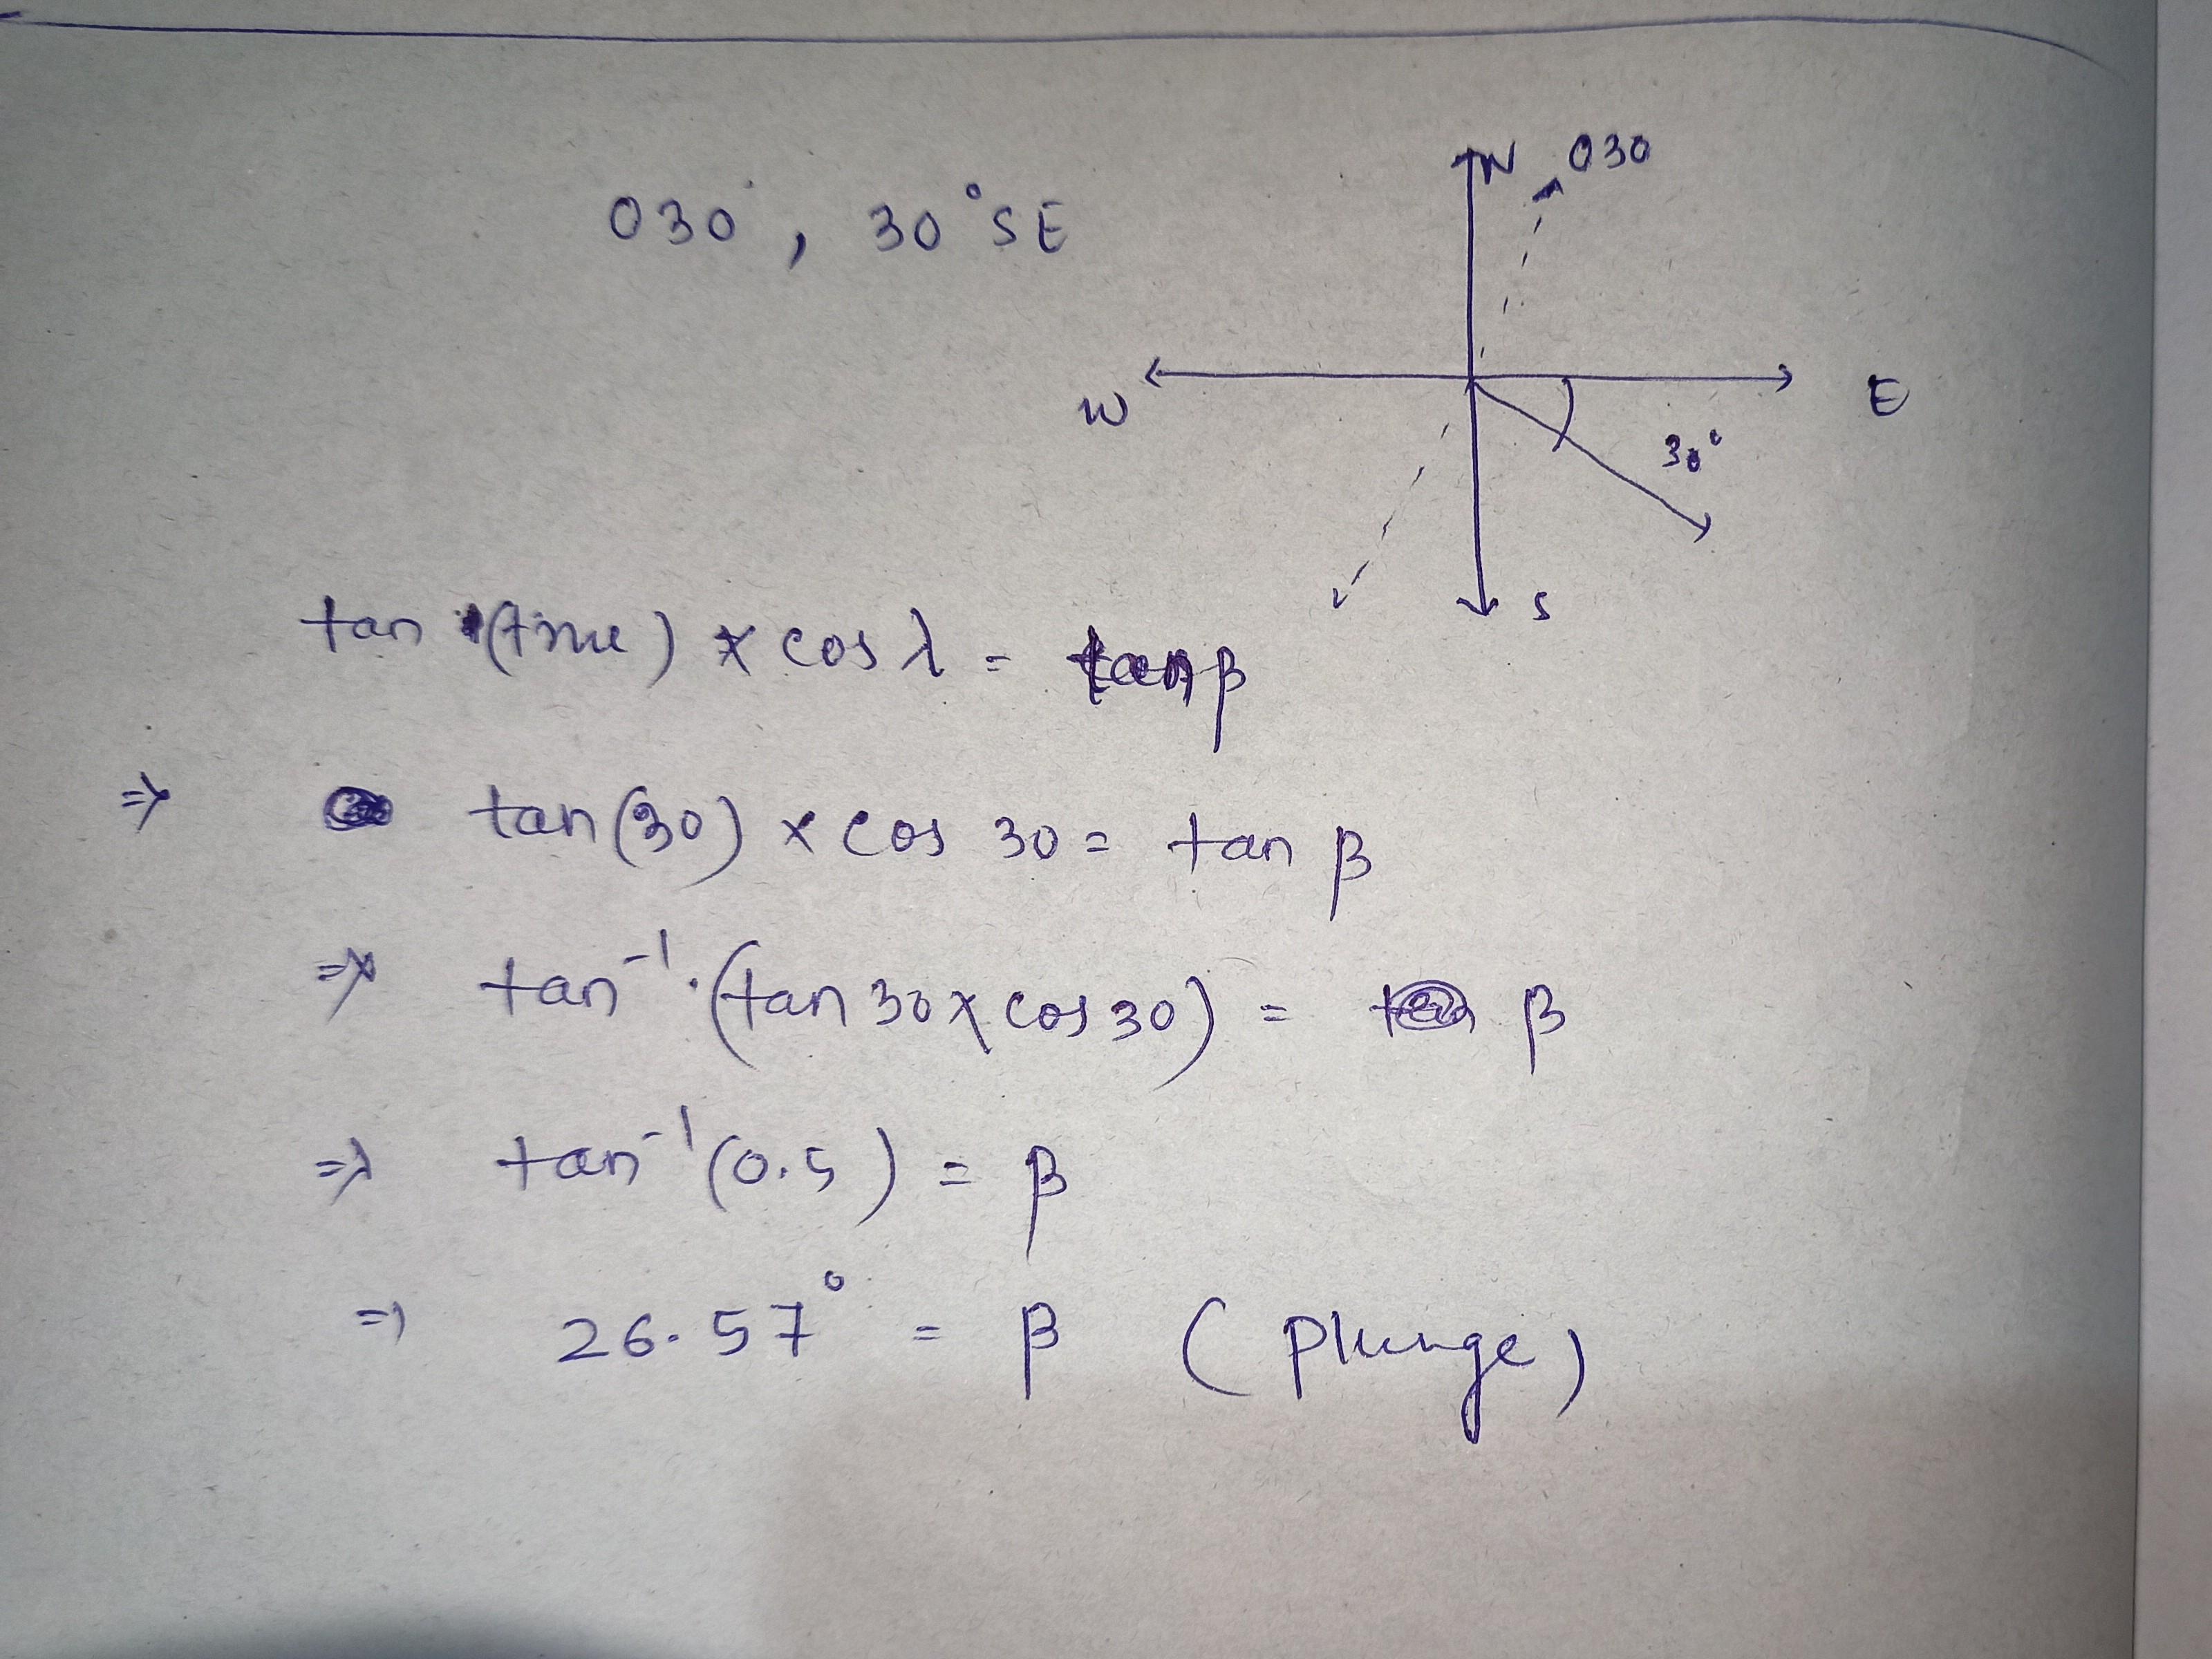 N 030
030°, 30°SE
W E
30°
S
tan (true) × cos λ = tan β
⇒ tan (30) × cos 30 = tan β
⇒ tan⁻¹ (tan 30 × cos 30) = β
⇒ tan⁻¹ (0.5) = β
⇒ 26.57° = β (plunge)